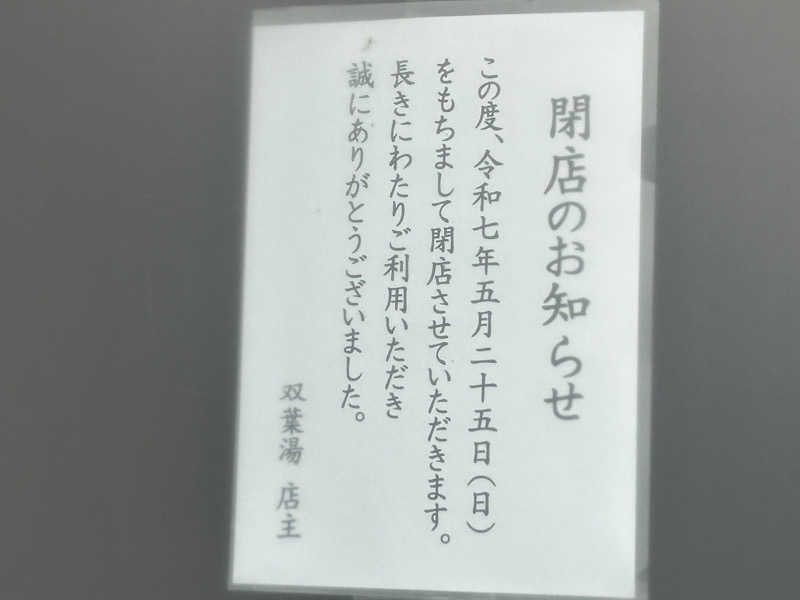 閉店のお知らせ
この度、令和七年五月二十五日（日）
をもちまして閉店させていただきます。
長きにわたりご利用いただき
誠にありがとうございました。
双葉湯 店主